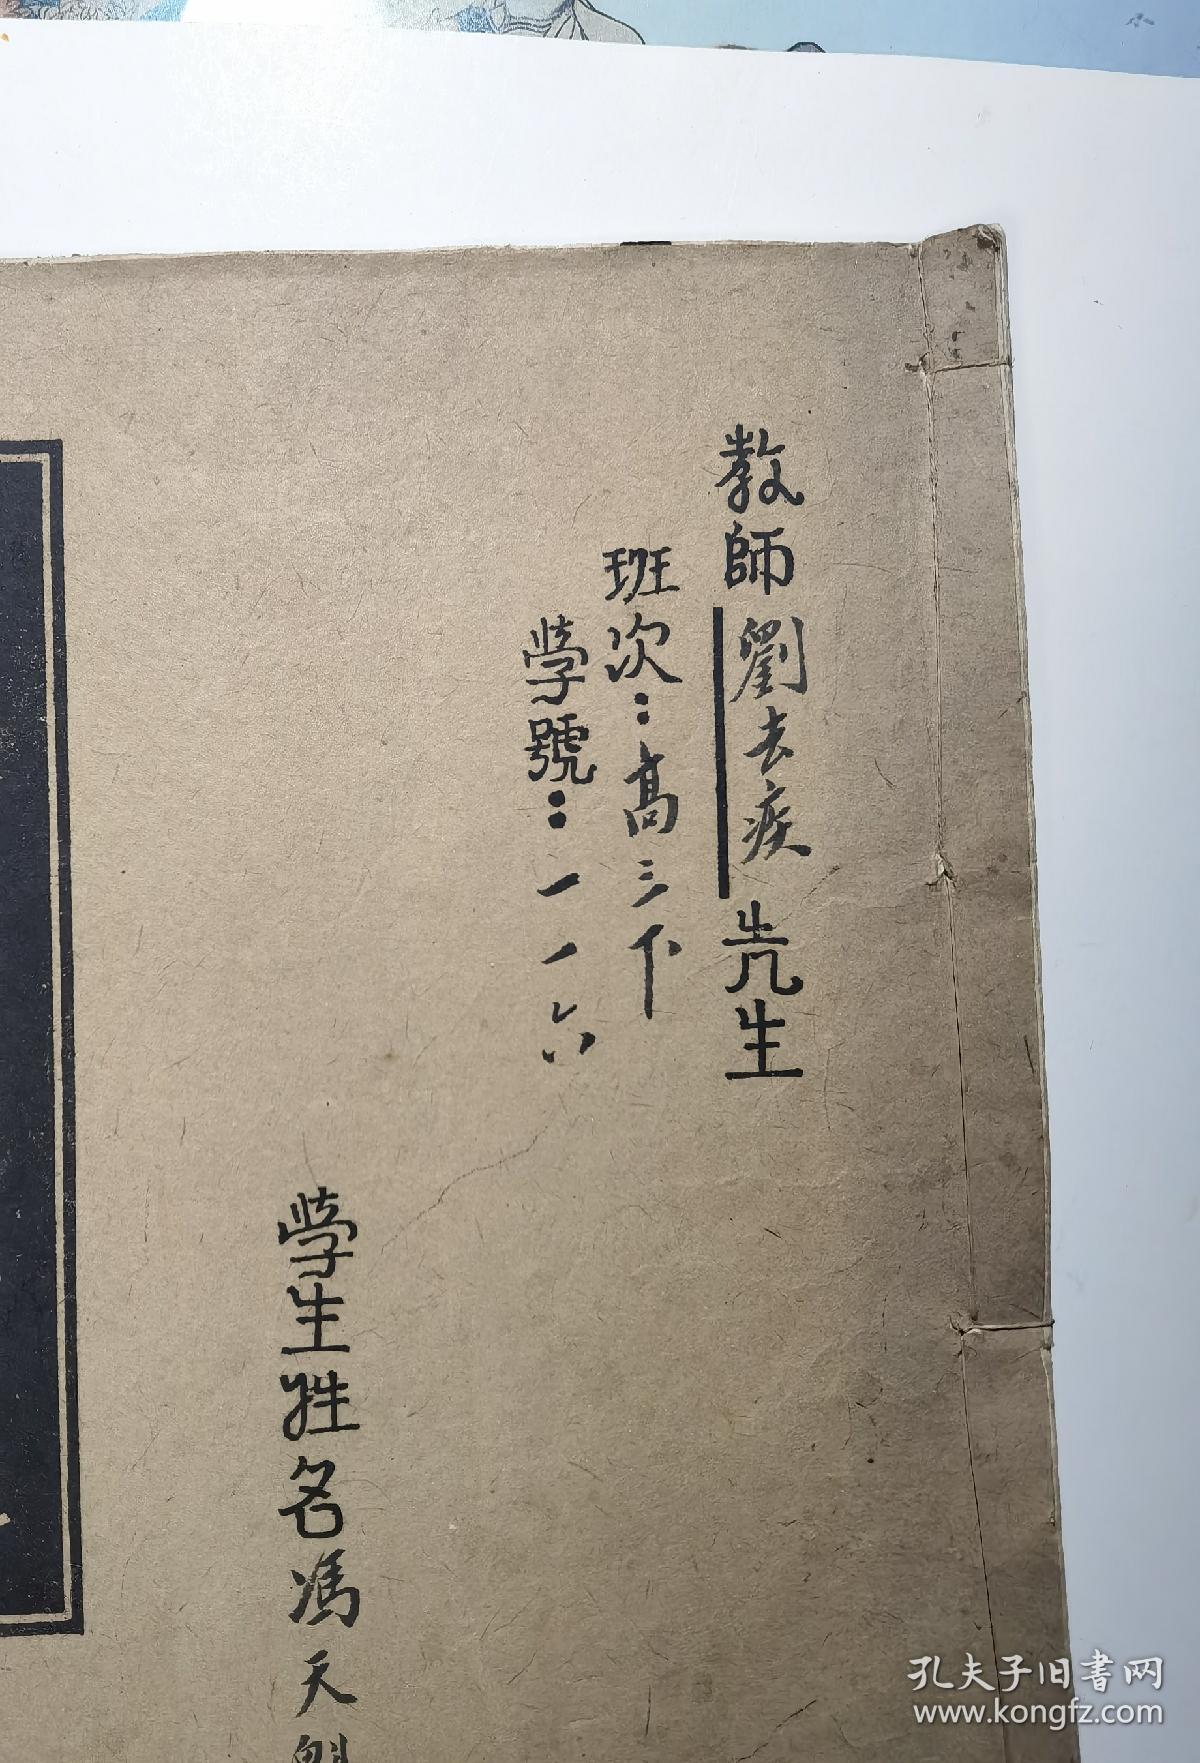 教師劉去疾先生
班次：高三下
學號：一一六
學生姓名馮天
孔夫子旧書网
www.kongfz.com